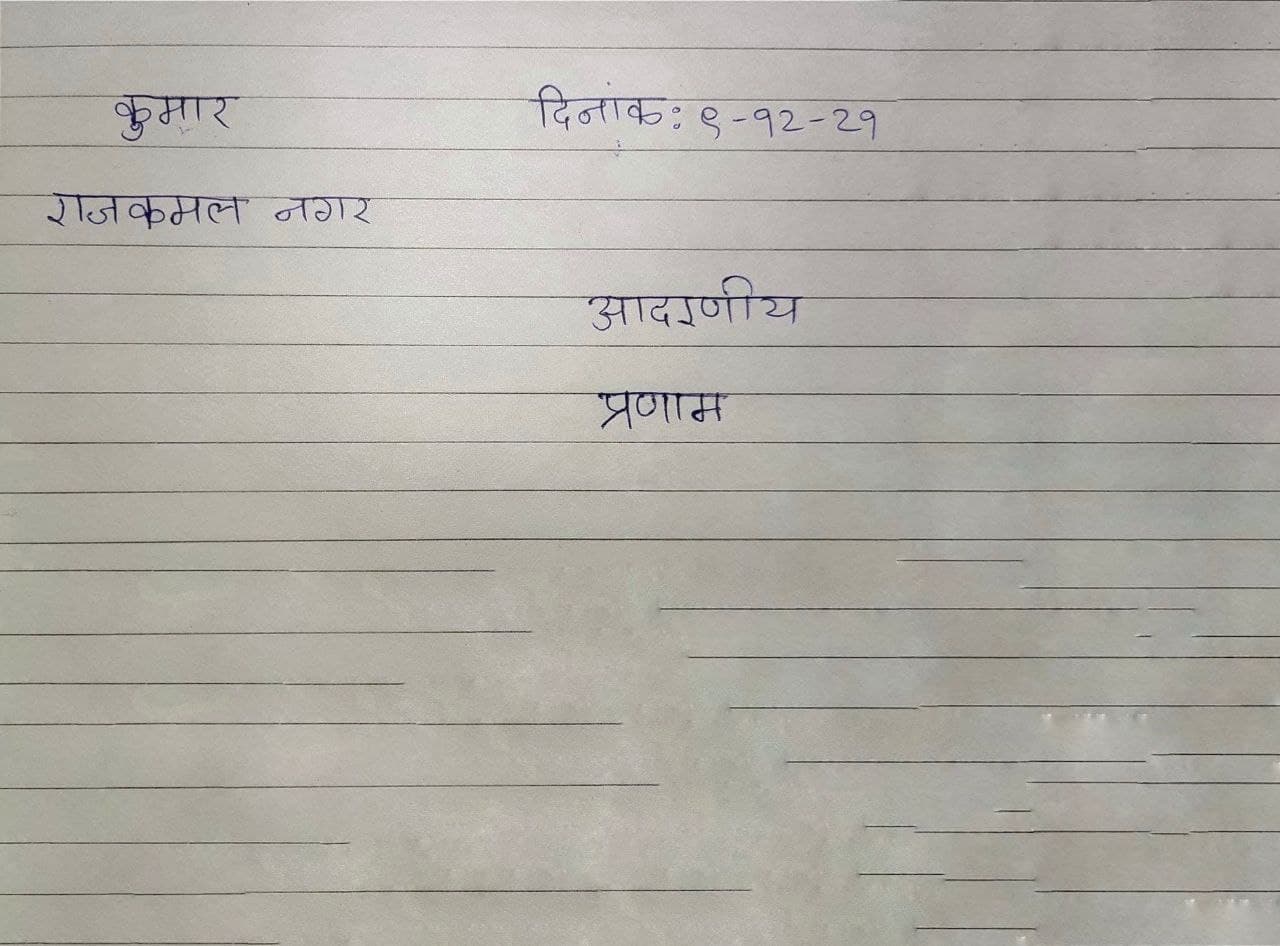 कुमार दिनांक: ९-१२-२१
राजकमल नगर
आदरणीय
प्रणाम